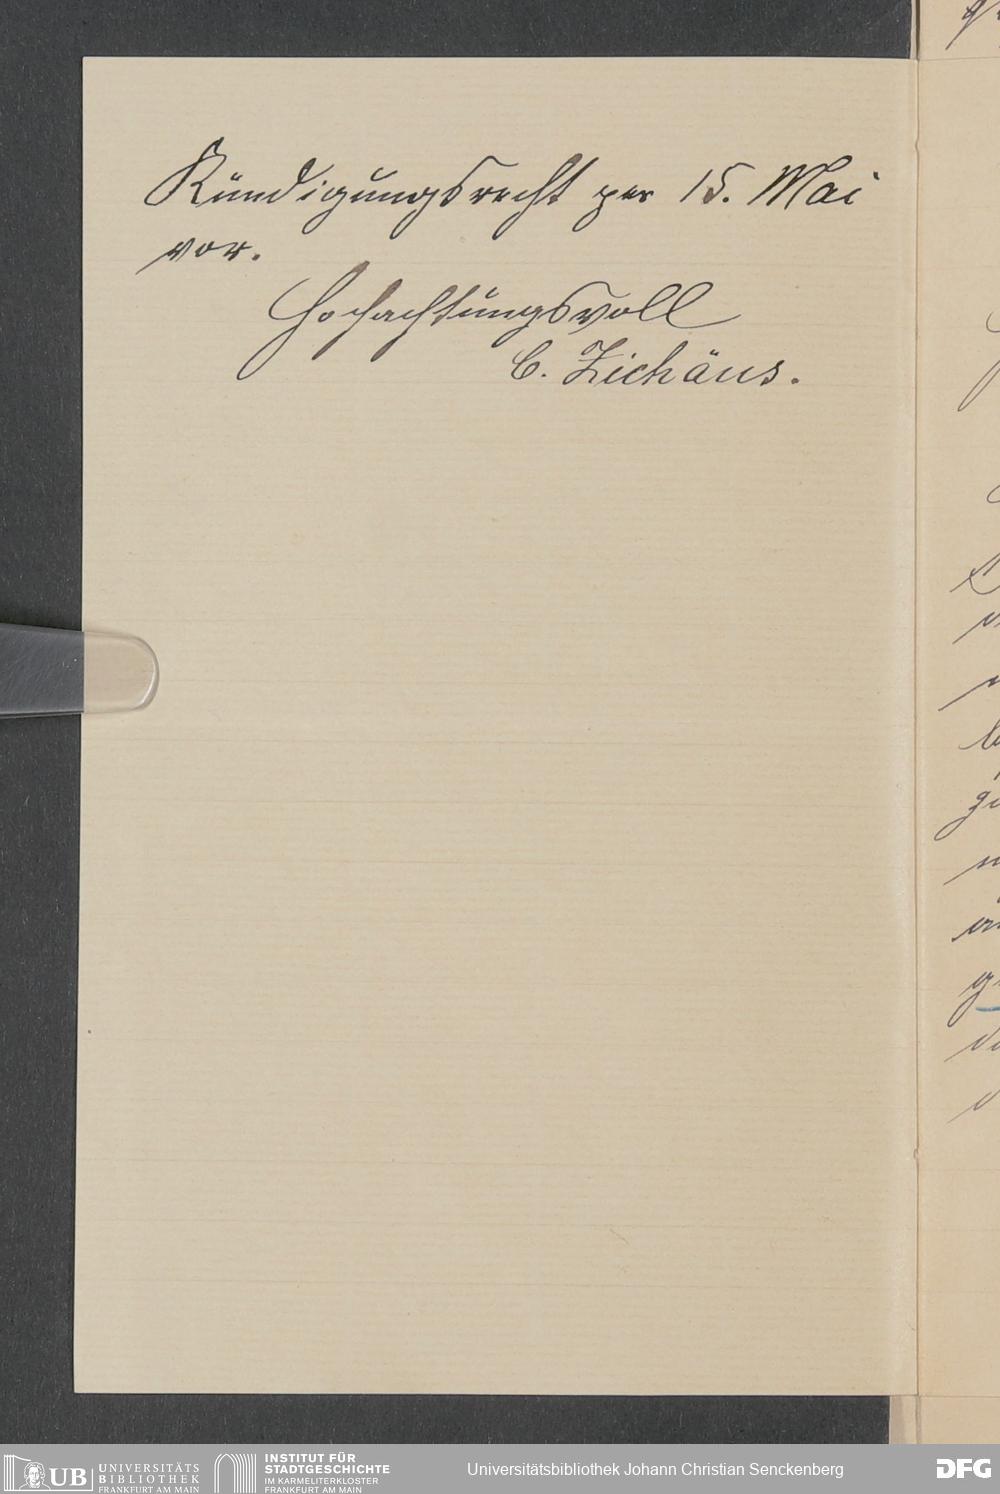 Kündigungsrecht per 15. Mai
vor.
Hochachtungsvoll
C. Zichäus.
UB UNIVERSITÄTS
BIBLIOTHEK
FRANKFURT AM MAIN
INSTITUT FÜR
STADTGESCHICHTE
IM KARMELITERKLOSTER
FRANKFURT AM MAIN
Universitätsbibliothek Johann Christian Senckenberg
DFG